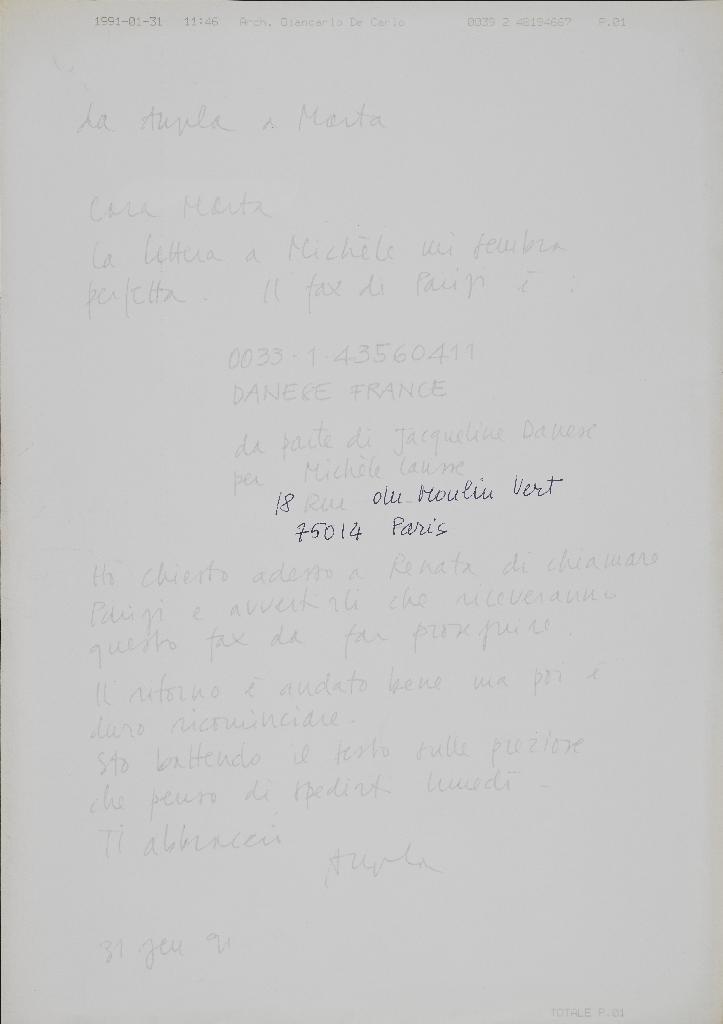 1991-01-31 11:46 Arch. Giancarlo De Carlo 0039 2 48194667 P.01
da Angela a Marta
Cara Marta
la lettera a Michèle mi sembra
perfetta. Il fax di Parigi è :
0033.1.43560411
DANESE FRANCE
da parte di Jacqueline Danese
per Michèle
18 Rue du Moulin Vert
75014 Paris
Ho chiesto adesso a Renata di chiamare
Parigi e avvertirli che riceveranno
questo fax da far proseguire.
Il ritorno è andato bene ma poi è
duro ricominciare.
Sto battendo il testo sulle preziose
che penso di spedirti lunedì -
Ti abbraccio
Angela
31 gen 91
TOTALE P.01